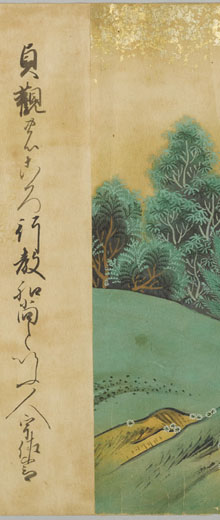 貞觀のころ行教和尚といふ人宇佐宮